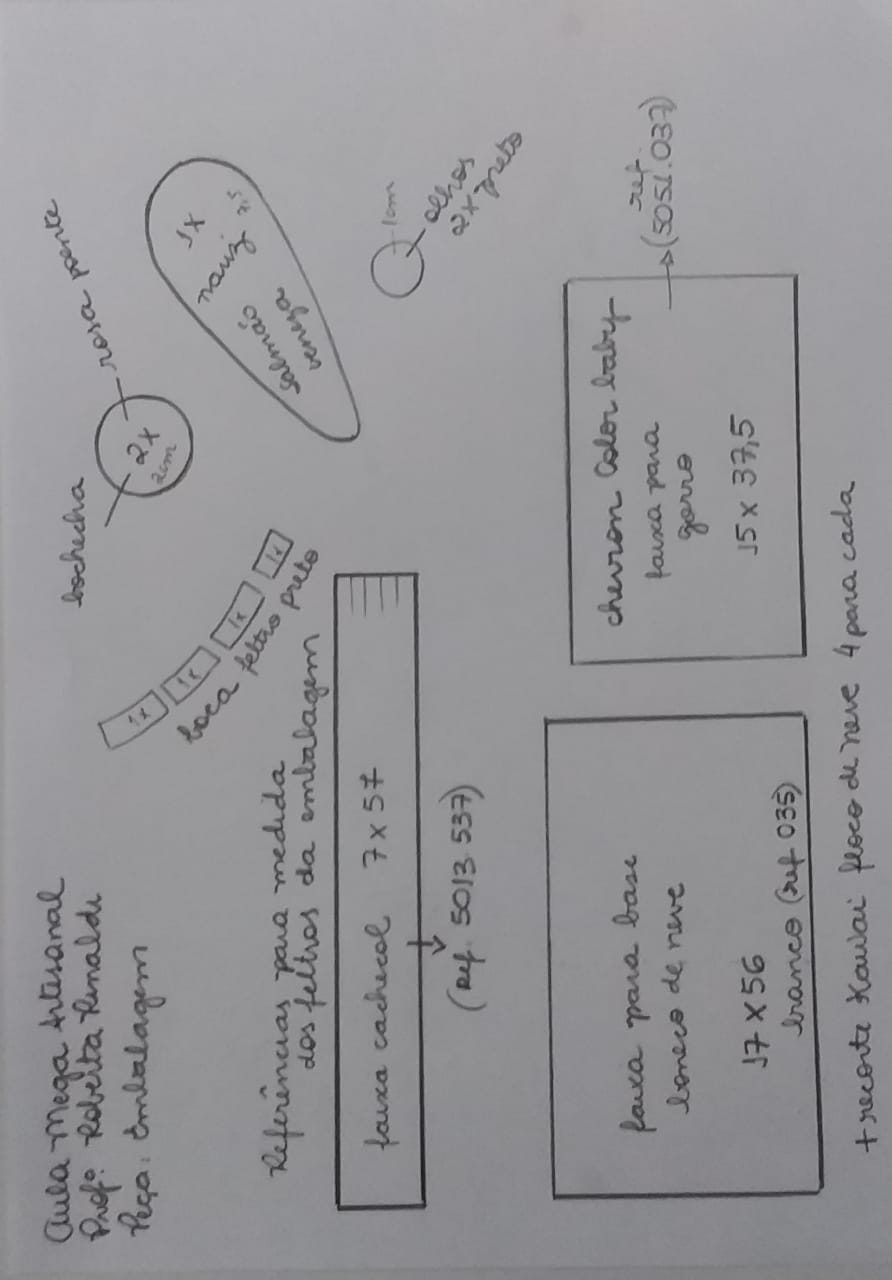 Aula Mega Artesanal
Profª: Roberta Rinaldi
Peça: Embalagem
bochecha
2x
2cm
rosa ponte
1x
nariz 7,5
salmão
veneza
1cm
olhos
2x preto
1x
1x
1x
1x
boca feltro preto
Referências para medida
dos feltros da embalagem
faixa cachecol 7x57
(Ref. 5013.537)
faixa para base
boneco de neve
17x56
branco (ref 035)
chevron Color baby
faixa para
gorro
15x37,5
ref.
(5051.037)
+ recorte Kawai floco de neve 4 para cada